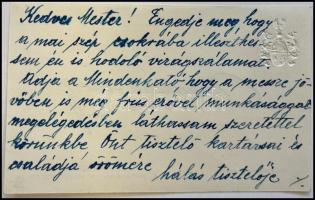 Kedves Mester! Engedje meg hogy
a mai szép csokrába illeszthes-
sem én is hódoló virágszálamat.
Adja a Mindenható, hogy a messze jö-
vőben is még friss erővel munkásággal
megelégedésben láthassam szeretettel
körünkbe Önt tisztelő kartársai és
családja örömére
hálás tisztelője